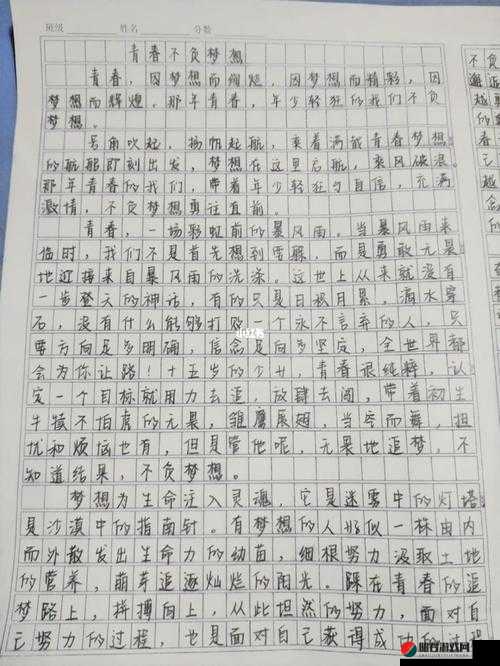 班级 姓名 分数
青春不负梦想
青春，因梦想而绚烂，因梦想而精彩，因
梦想而辉煌。那年青春，年少轻狂的我们不负
梦想。
号角吹起，扬帆起航，乘着满载青春梦想
的航船即刻出发，梦想在这里启航，乘风破浪。
那年青春的我们，带着年少轻狂与自信，充满
激情，不负梦想勇往直前。
青春，一场彩虹前的暴风雨。当暴风雨来
临时，我们不是首先想到雷躲，而是勇敢无畏
地迎接来自暴风雨的洗涤。这世上从来就没有
一步登天的神话，有的只是日积月累，滴水穿
石，没有什么能够打败一个永不言弃的人，只
要方向足够明确，信念足够坚定，全世界都
会为你让路！十五岁的少年，青春很纯粹，认
定一个目标就用力去追，放肆去闯，带着初生
牛犊不怕虎的无畏，雏鹰展翅，当空而舞，担
忧和烦恼也有，但是管他呢，无畏地追梦，不
知道结果，不负梦想。
梦想为生命注入灵魂，它是迷雾中的灯塔
是沙漠中的指南针。有梦想的人好似一株由内
而外散发出生命力的幼苗，细根努力汲取土地
的营养，萌芽追逐灿烂的阳光。踩在青春的追
梦路上，拼搏向上，从此坦然的努力，面对自
己努力的过程，也是面对自己获得成功的过程
不负
邂逅
越
小红书
嗨客游戏网